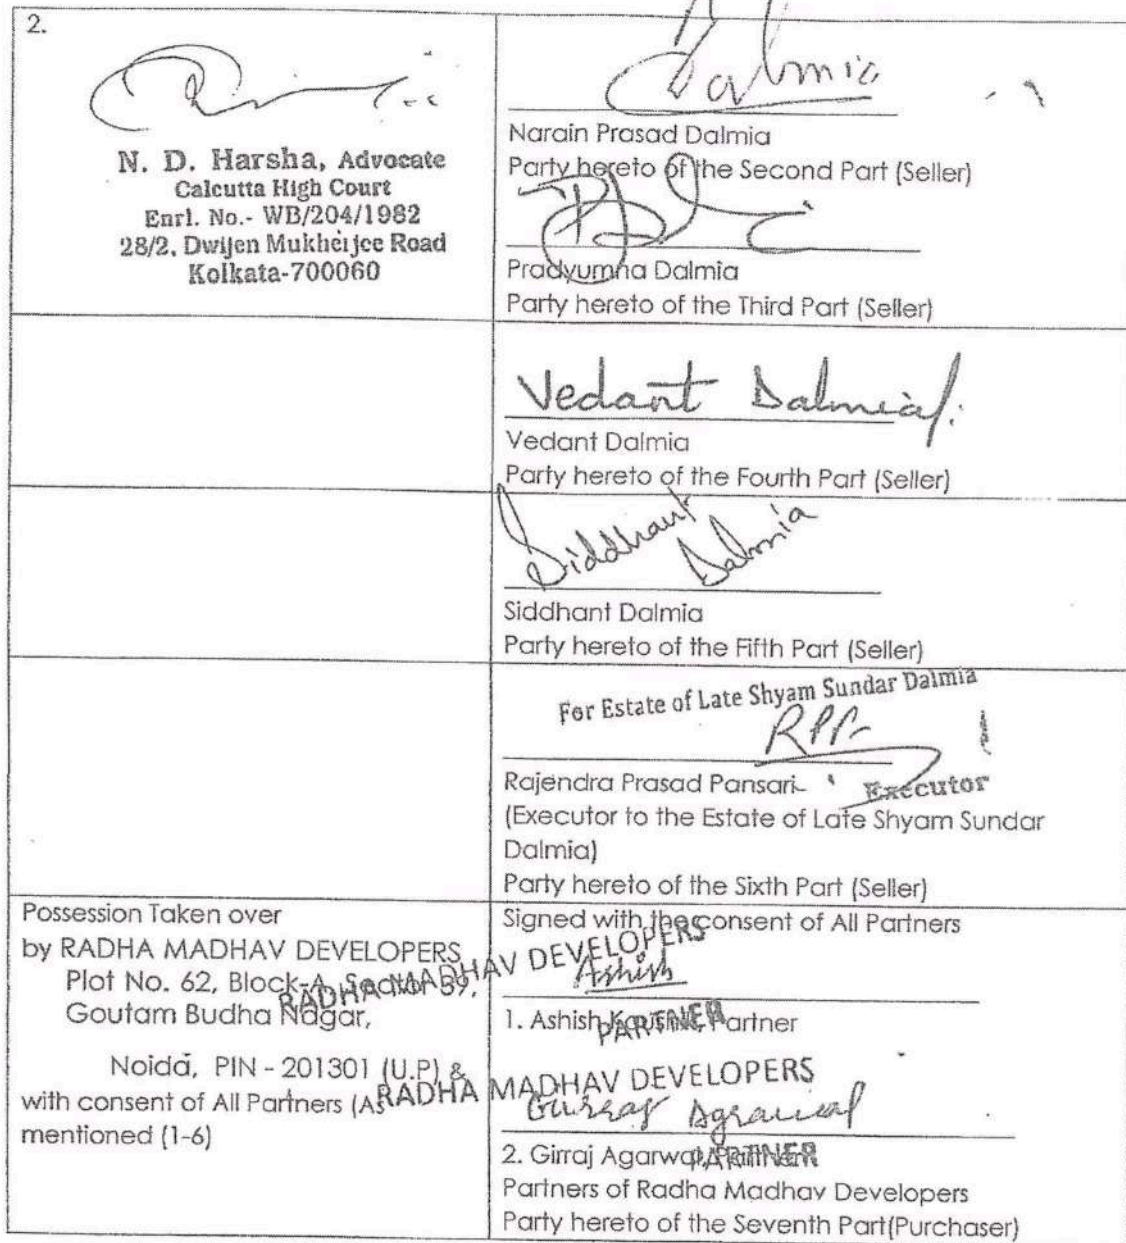 2.
N. D. Harsha, Advocate
Calcutta High Court
Enrl. No.- WB/204/1982
28/2, Dwijen Mukherjee Road
Kolkata-700060
Dalmia
Narain Prasad Dalmia
Party hereto of the Second Part (Seller)
Pradyumna Dalmia
Party hereto of the Third Part (Seller)
Vedant Dalmia
Vedant Dalmia
Party hereto of the Fourth Part (Seller)
Siddhant Dalmia
Siddhant Dalmia
Party hereto of the Fifth Part (Seller)
For Estate of Late Shyam Sundar Dalmia
Rajendra Prasad Pansari
Executor
(Executor to the Estate of Late Shyam Sundar
Dalmia)
Party hereto of the Sixth Part (Seller)
Possession Taken over
by RADHA MADHAV DEVELOPERS
Plot No. 62, Block-A, Sector 39,
Goutam Budha Nagar,
Noida, PIN - 201301 (U.P) &
with consent of All Partners (As
mentioned (1-6)
Signed with the consent of All Partners
RADHA MADHAV DEVELOPERS
Ashish
1. Ashish Partner
PARTNER
RADHA MADHAV DEVELOPERS
Girraj Agrawal
2. Girraj Agarwal,
PARTNER
Partners of Radha Madhav Developers
Party hereto of the Seventh Part(Purchaser)